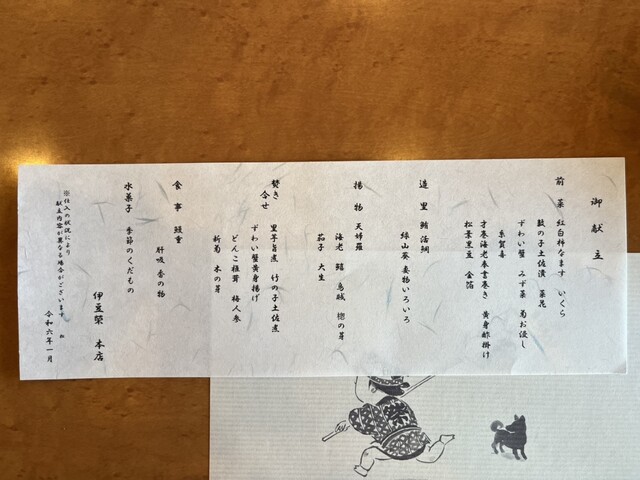 御献立
前菜 紅白柿なます いくら
数の子土佐漬 菜花
ずわい蟹 みず菜 菊お浸し
糸賀喜
才巻海老奉書巻き 黄身酢掛け
松葉黒豆 金箔
造里 鮪 活〆
緑山葵 妻物いろいろ
揚物 天婦羅
海老 鱚 烏賊 楤の芽
茄子 大生
焚き合せ
里芋旨煮 竹の子土佐煮
ずわい蟹黄身揚げ
どんこ椎茸 梅人参
新菊 木の芽
食事 鰻重
肝吸 香の物
水菓子 季節のくだもの
伊豆榮 本店
※仕入の状況により
献立内容が異なる場合がございます
令和六年一月